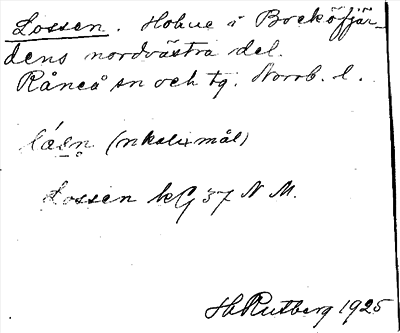 Lossen. Holme i Bocköfjär-
dens nordvästra del.
Råneå sn och tg. Norrb. l.
(nkalixmål)
Lossen kG 37 N M.
HRutberg 1925